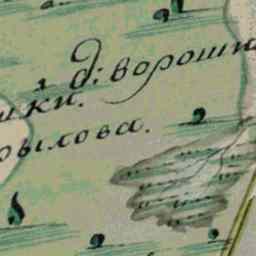 д: ворошил
шки.
рылова.